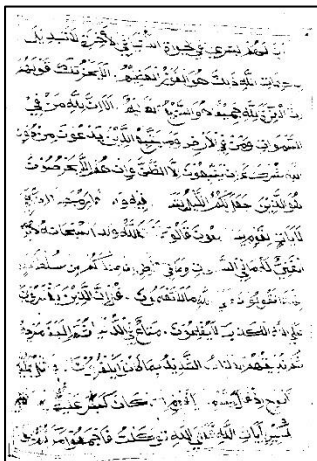 لهم البشرى في الحيوة الدنيا وفي الاخرة لا تبديل
لكلمات الله ذلك هو الفوز العظيم ولا يحزنك قولهم
ان العزة لله جميعا هو السميع العليم الا ان لله من في
السموات ومن في الارض وما يتبع الذين يدعون من دون
الله شركاء ان يتبعون الا الظن وان هم الا يخرصون
هو الذي جعل لكم الليل فيه
لآيات لقوم يسمعون قالوا الله ولدا سبحانه هو
الغني له ما في السموات وما في الارض ان عندكم من سلطان
بهذا اتقولون على الله ما لا تعلمون قل ان الذين يفترون
على الله الكذب لا يفلحون متاع في الدنيا ثم الينا مرجعهم
ثم نذيقهم العذاب الشديد بما كانوا يكفرون واتل عليهم
نوح اذ قال لقومه ان كان كبر عليكم
بآيات الله فعلى الله توكلت فاجمعوا امركم